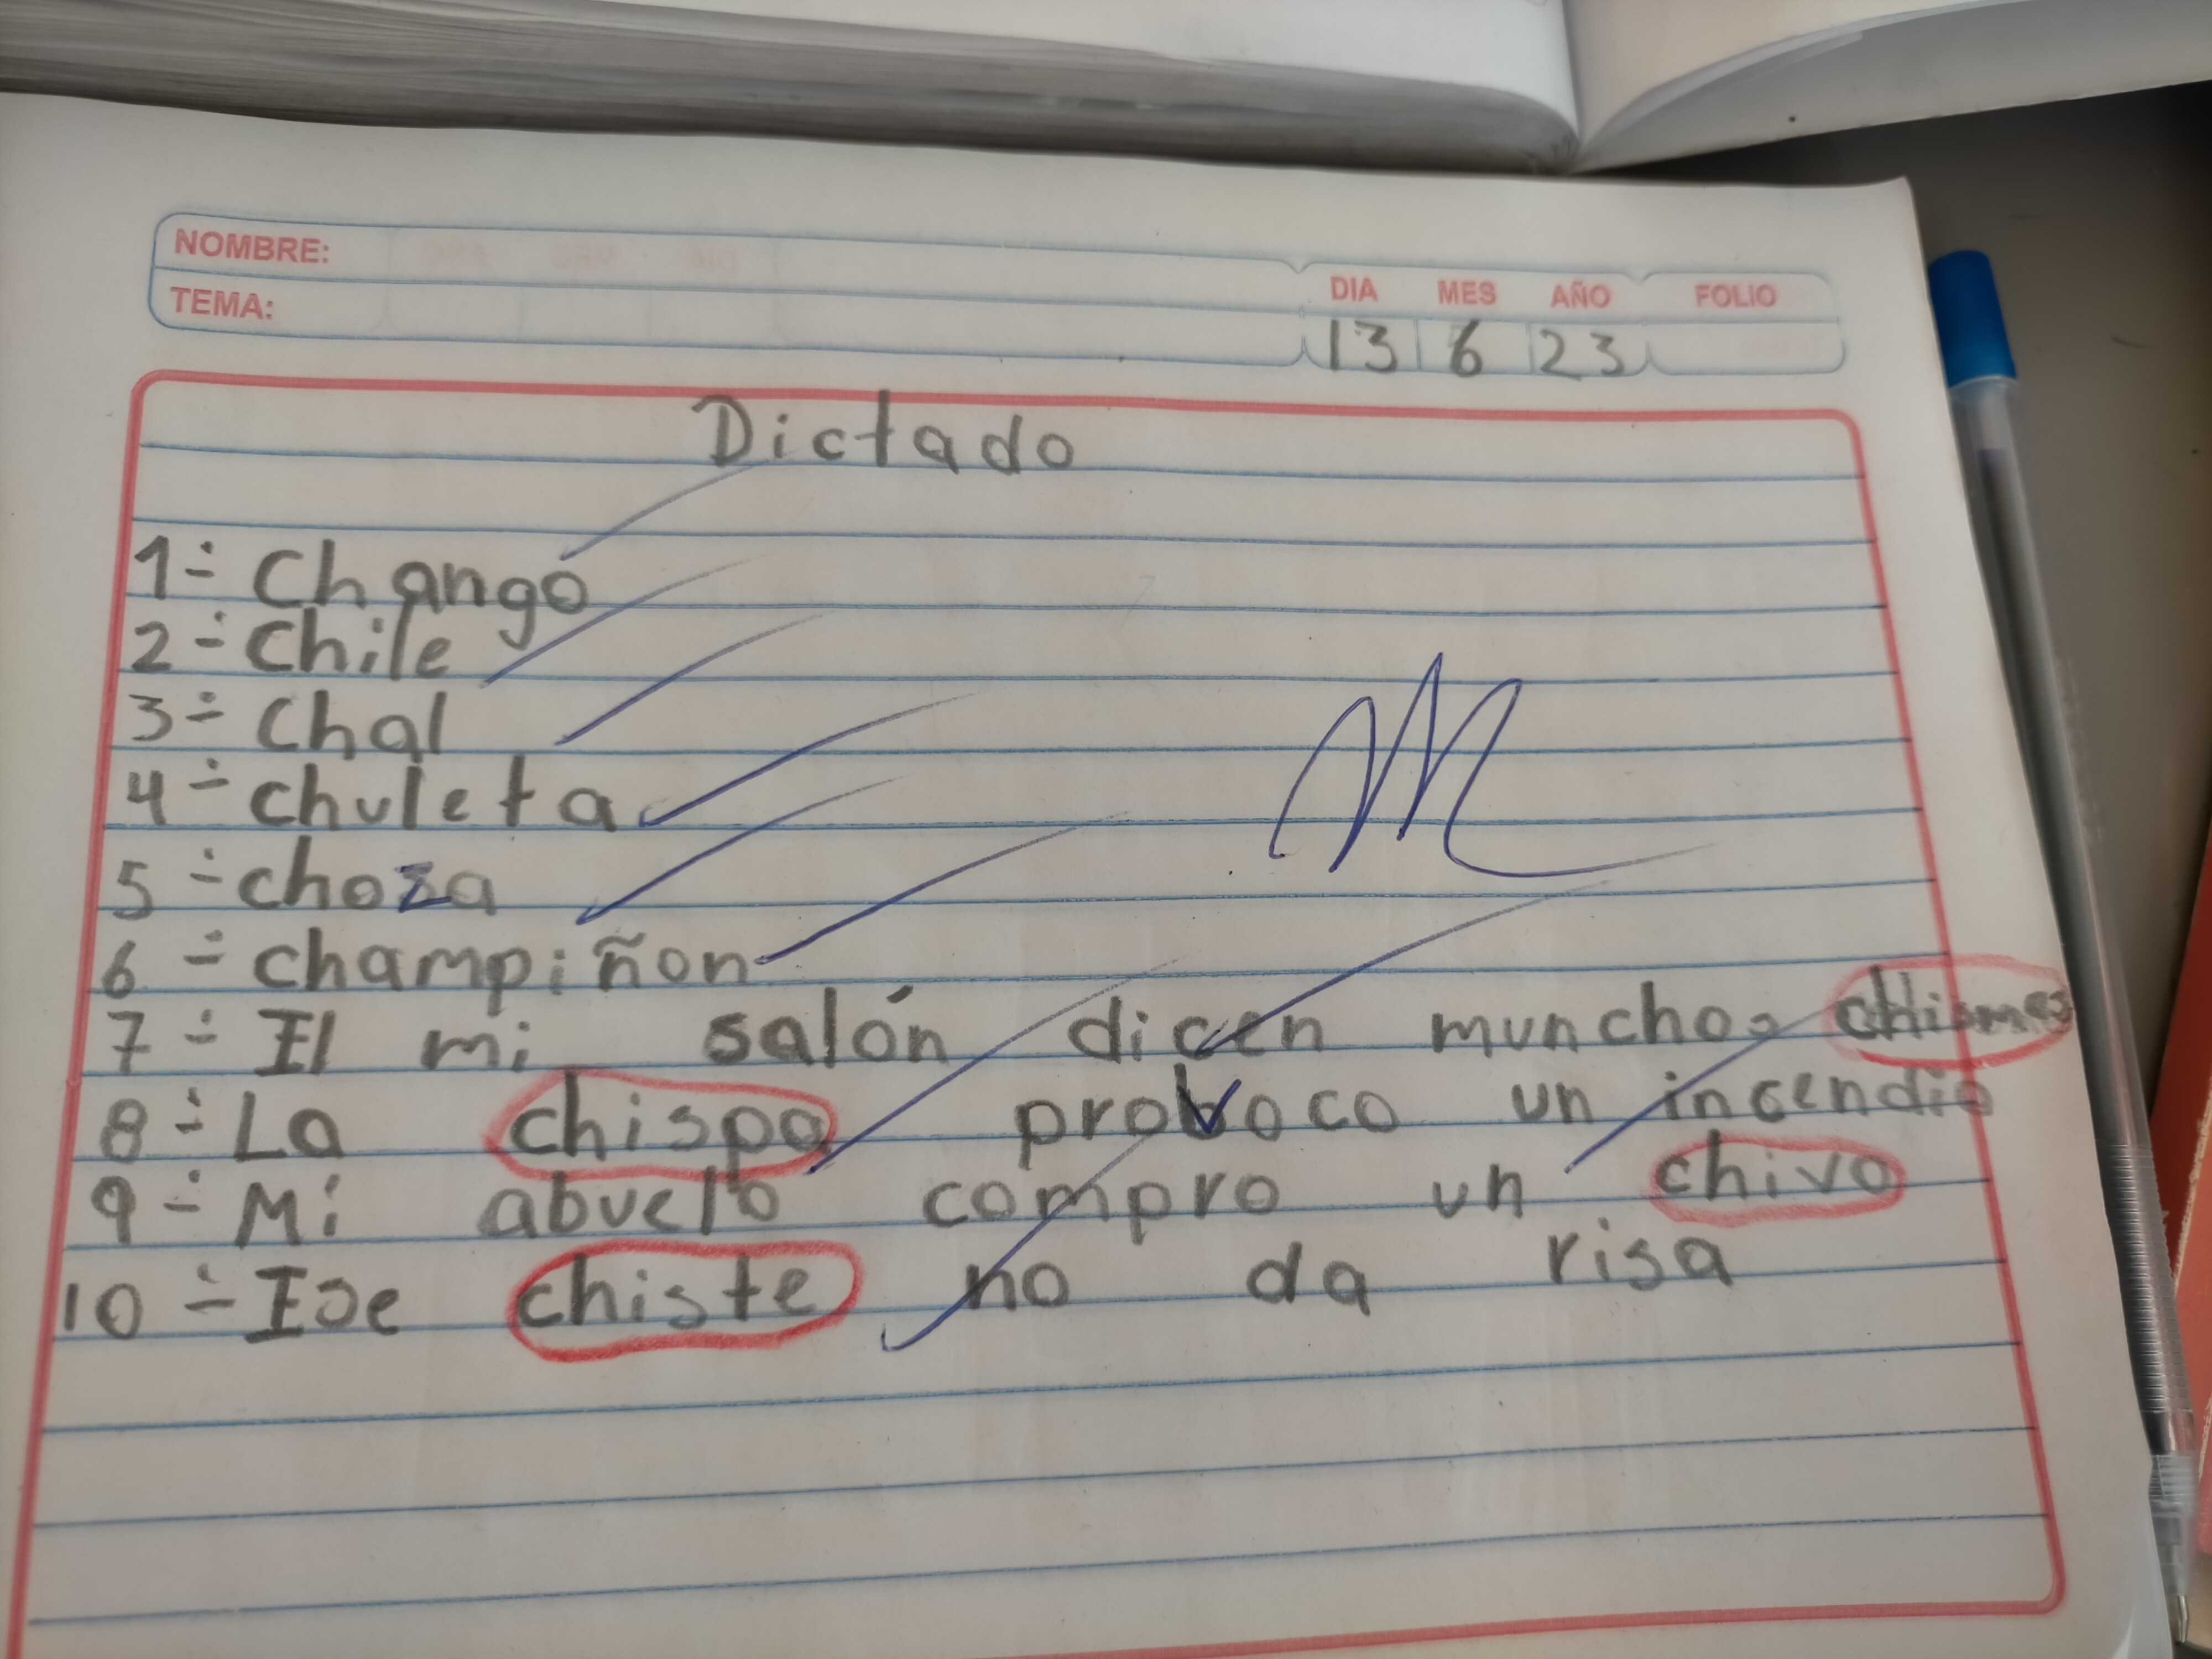 NOMBRE:
TEMA:
DIA MES AÑO FOLIO
13 6 23
Dictado
1÷ Chango
2÷ Chile
3÷ Chal
4÷ chuleta
5÷ choza
6÷ champiñon
7÷ El mi salón dicen munchos chismes
8÷ La chispa provoco un incendio
9÷ Mi abuelo compro un chivo
10÷ Ese chiste no da risa